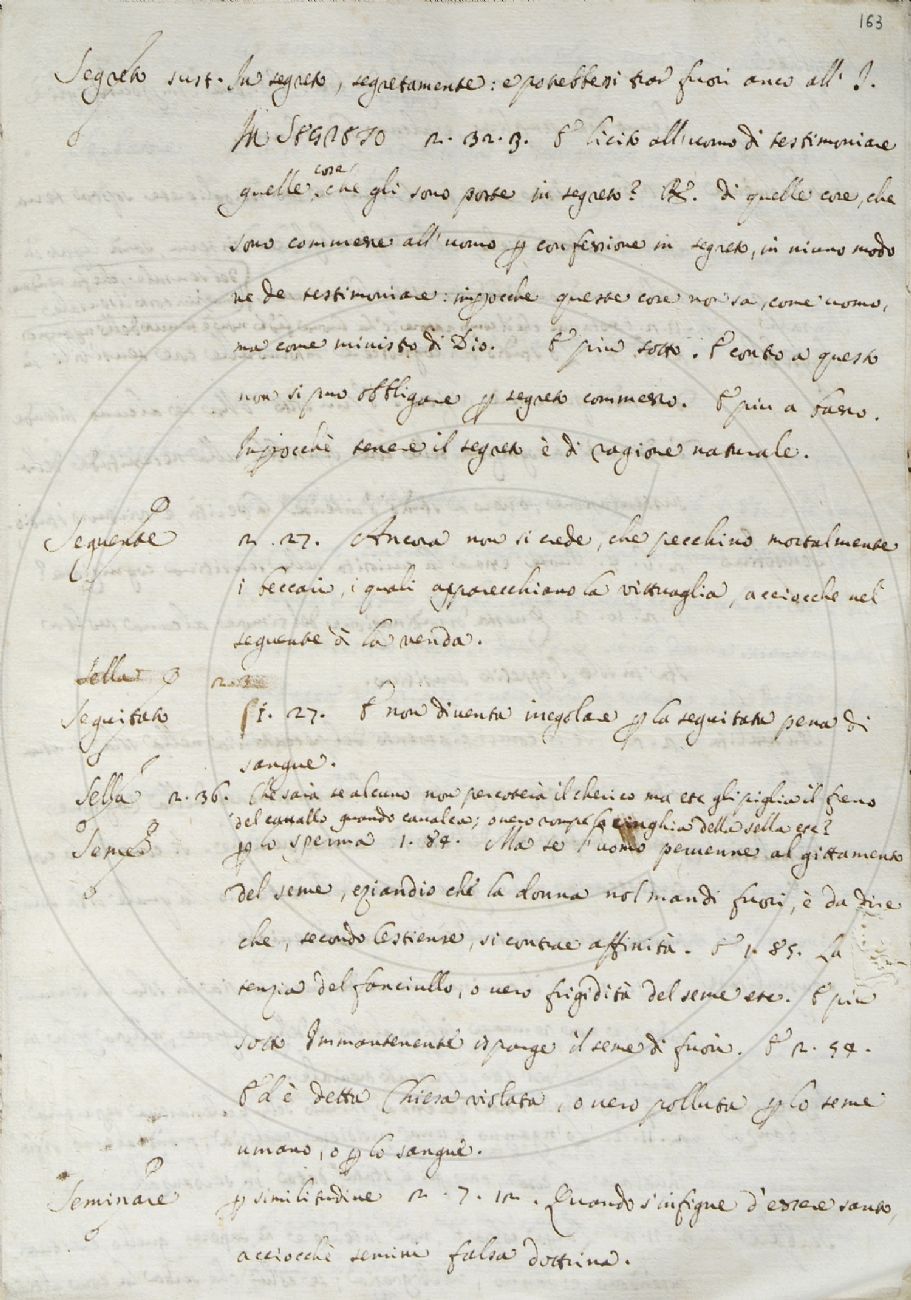 163
Segreto sust. In segreto, segretamente: e potrebbesi trar fuori anco all' I.
IN SEGRETO 2. 32. 3. E licito all'uomo di testimoniare
cose
quelle, che gli sono poste in segreto? R. di quelle cose, che
sono commesse all'uomo p confessione in segreto, in niuno modo
ne de testimoniare: impocche queste cose non sa, come uomo,
ma come ministo di Dio. E più sotto. E conto a questo
non si puo obbligare p segreto commesso. E piu a basso.
Impocchè tenere il segreto è di ragione naturale.
Seguente 2. 27. Ancora non si crede, che pecchino mortalmente
i beccari, i quali apparecchiano la vittuaglia, acciocche nel
seguente dì la venda.
Sella 2.
Seguitato 1. 27. E non diventa irregolare p la seguitata pena di
sangue.
Sella 2. 36. Che sarà se alcuno non percoterà il cherico ma ese gli piglia il freno
del cavallo quando cavalca; o vero rompe la cinghia della sella ese?
Seme p lo sperma 1. 84. Ma se l'uomo pervenne al gittamento
del seme, eziandio chè la donna nol mandi fuori, è da dire
che, secondo l'estiense, si contrae affinità. E 1. 85. La
tenzia del fanciullo, o vero frigidità del seme ese. E più
sotto Immantenente isparge il seme di fuori. E 2. 54.
E d'è detta Chiesa violata, o vero polluta p lo seme
umano, o p lo sangue.
Seminare p similitudine 2. 7. 12. Quando s'infigne d'essere santo,
acciocchè semini falsa dottrina.